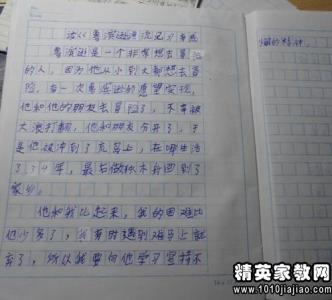 读《鲁滨逊漂流记》有感
鲁滨逊是一个非常想去冒险
的人,因为他从小到大都想去冒
险,有一次鲁滨逊的愿望实现,
他和他的朋友去冒险了,不幸被
大浪打翻,他和朋友分开了,于
是他被冲到了荒岛上,在哪生活
了34年,最后做木舟回到了
家乡。
他和我比起来,我的困难比
他少多了,我有时遇到难题上就
弃了,所以我要向他学习坚持不
懈的精神。
精英家教网
www.1010jiajiao.com